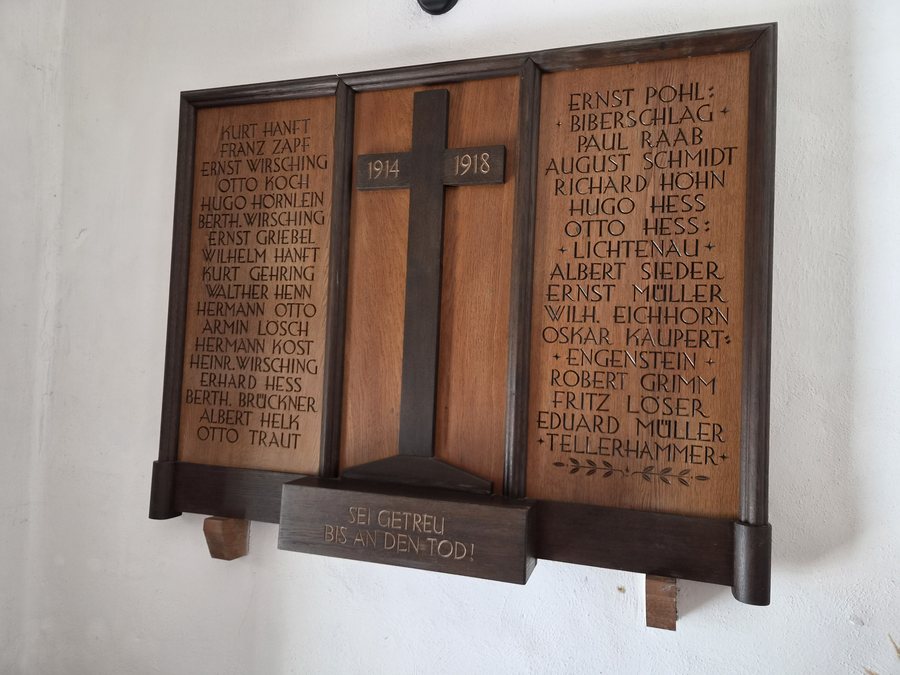 KURT HANFT
FRANZ ZAPF
ERNST WIRSCHING
OTTO KOCH
HUGO HÖRNLEIN
BERTH. WIRSCHING
ERNST GRIEBEL
WILHELM HANFT
KURT GEHRING
WALTHER HENN
HERMANN OTTO
ARMIN LÖSCH
HERMANN KOST
HEINR. WIRSCHING
ERHARD HESS
BERTH. BRÜCKNER
ALBERT HELK
OTTO TRAUT
1914 1918
SEI GETREU
BIS AN DEN TOD!
ERNST POHL:
BIBERSCHLAG
PAUL RAAB
AUGUST SCHMIDT
RICHARD HÖHN
HUGO HESS
OTTO HESS:
LICHTENAU
ALBERT SIEDER
ERNST MÜLLER
WILH. EICHHORN
OSKAR KAUPERT:
ENGENSTEIN
ROBERT GRIMM
FRITZ LÖSER
EDUARD MÜLLER
TELLERHAMMER